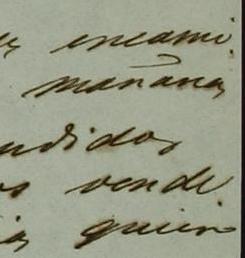 encami
mañana,
ndidos
vende
quien